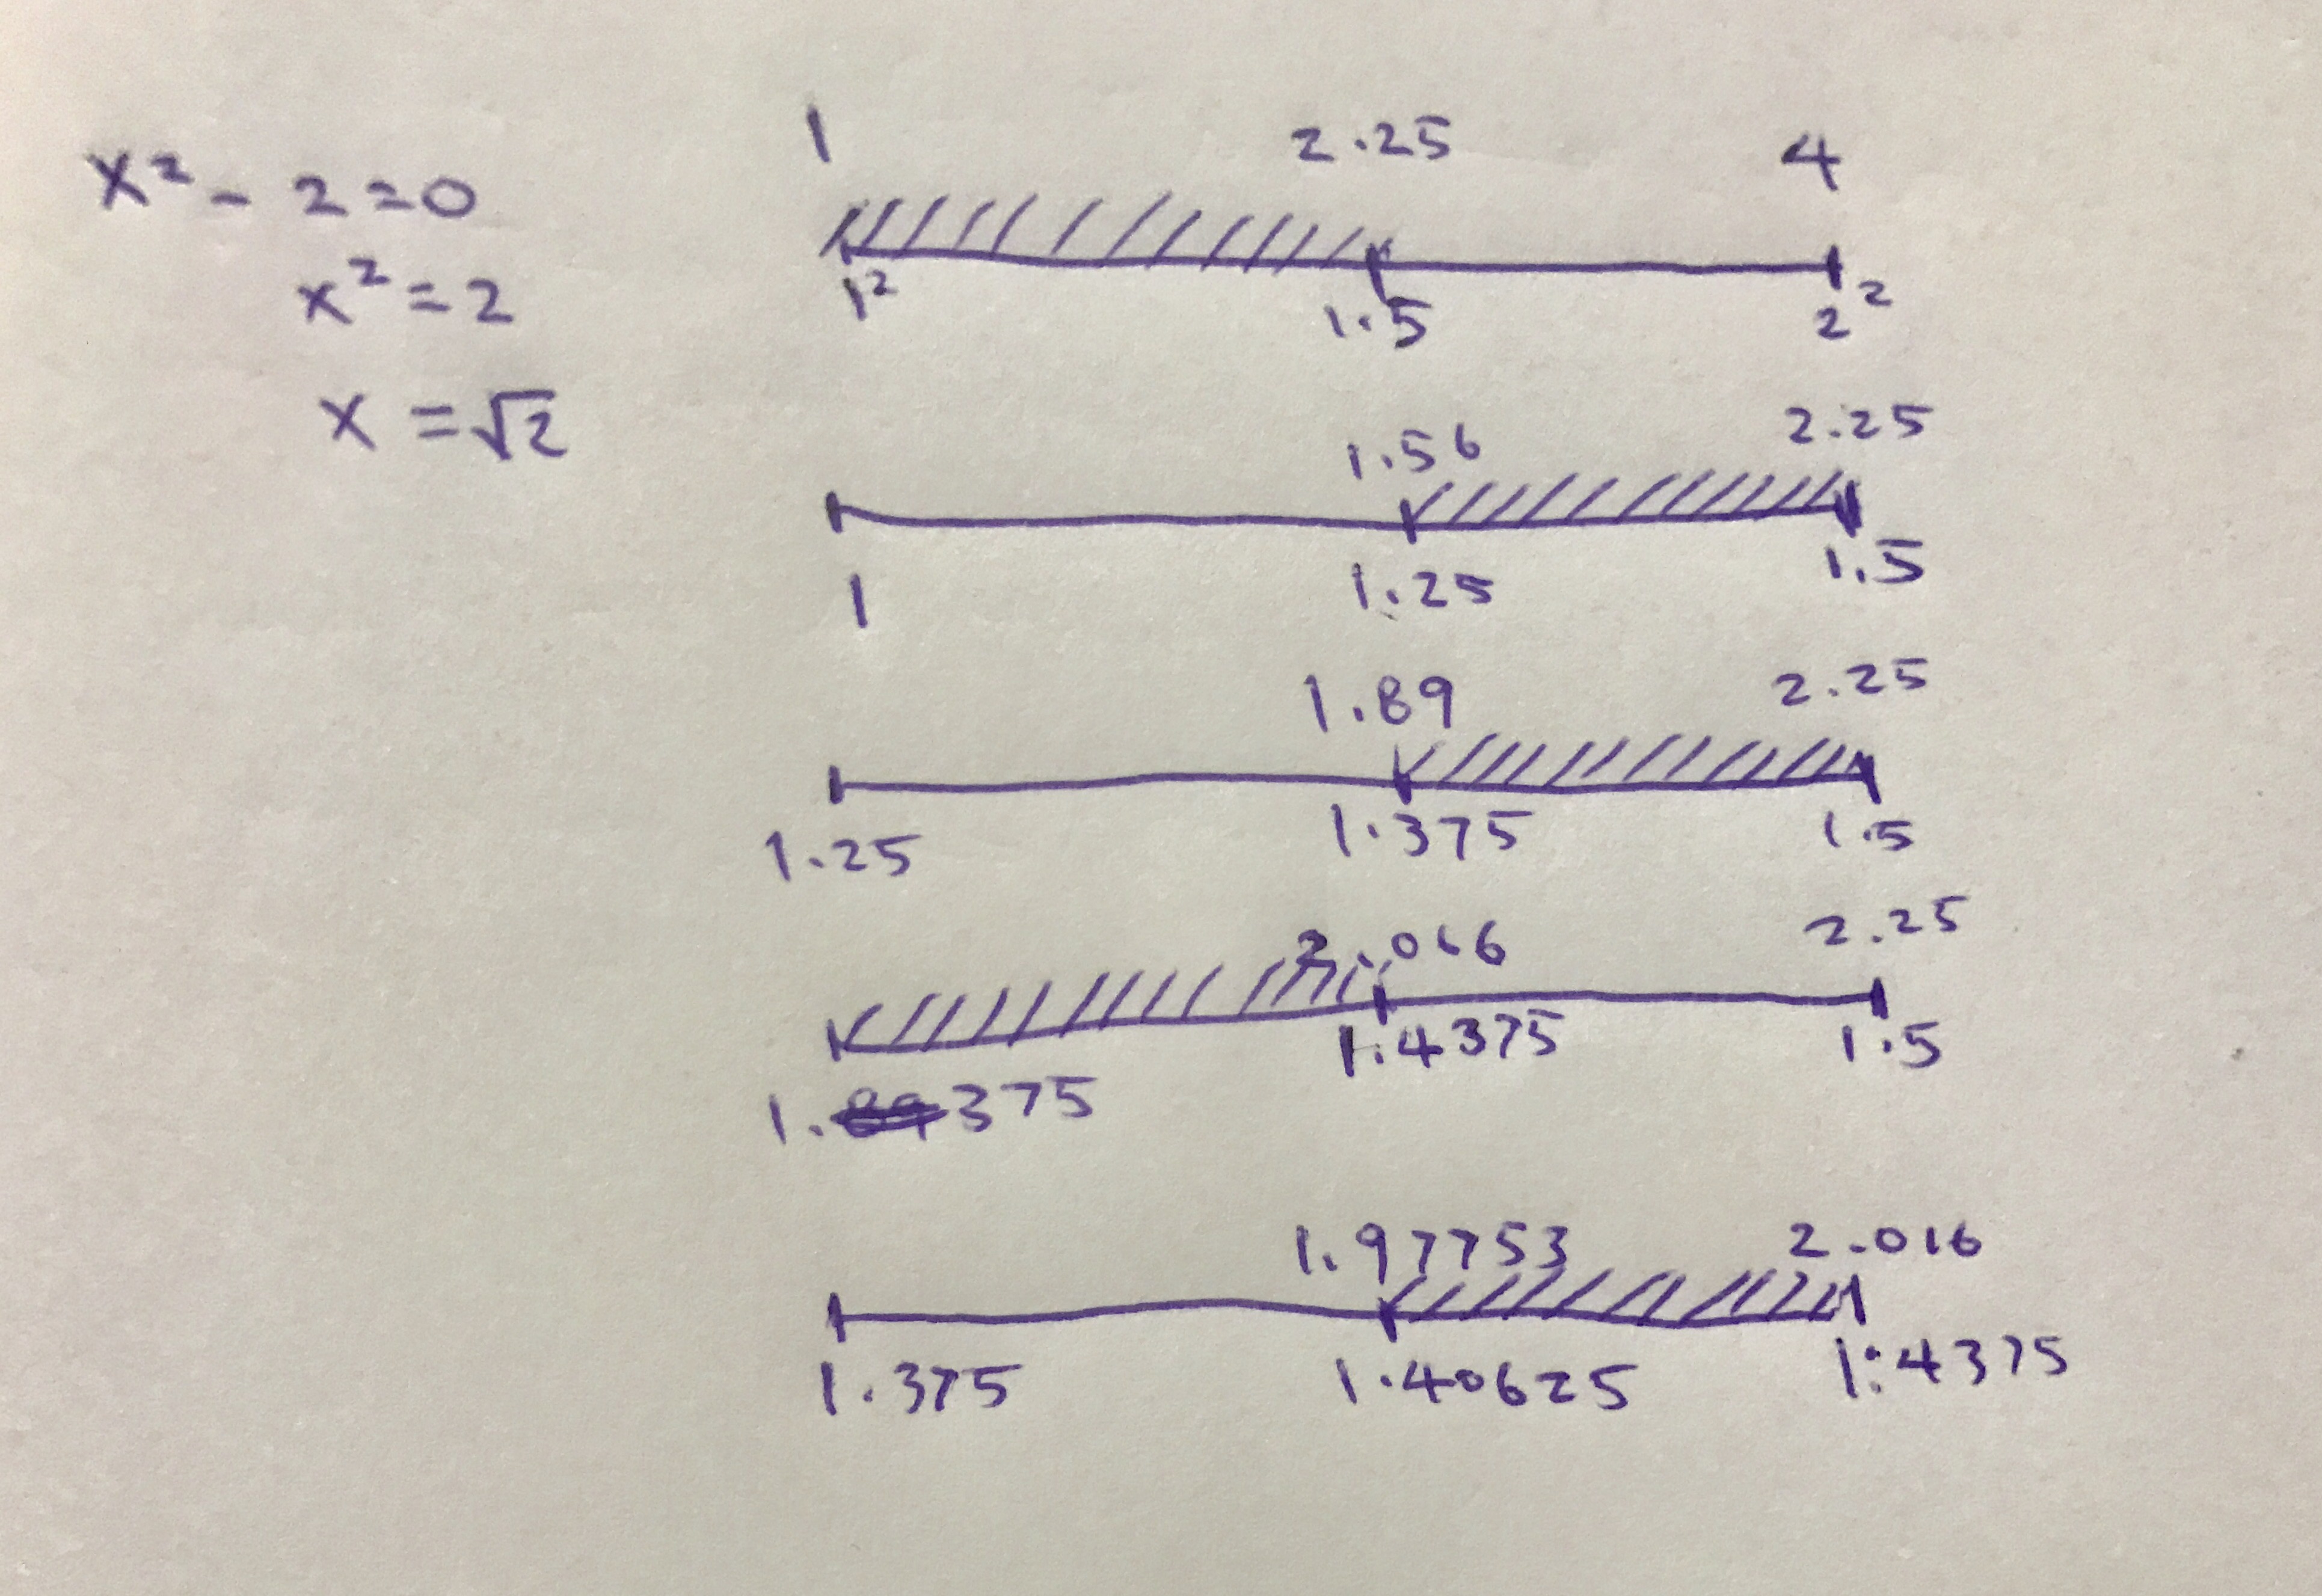 x² - 2 = 0
x² = 2
x = √2
1 2.25 4
1² 1.5 2²
1.56 2.25
1 1.25 1.5
1.89 2.25
1.25 1.375 1.5
2.066 2.25
1.375 1.4375 1.5
1.97753 2.016
1.375 1.40625 1.4375